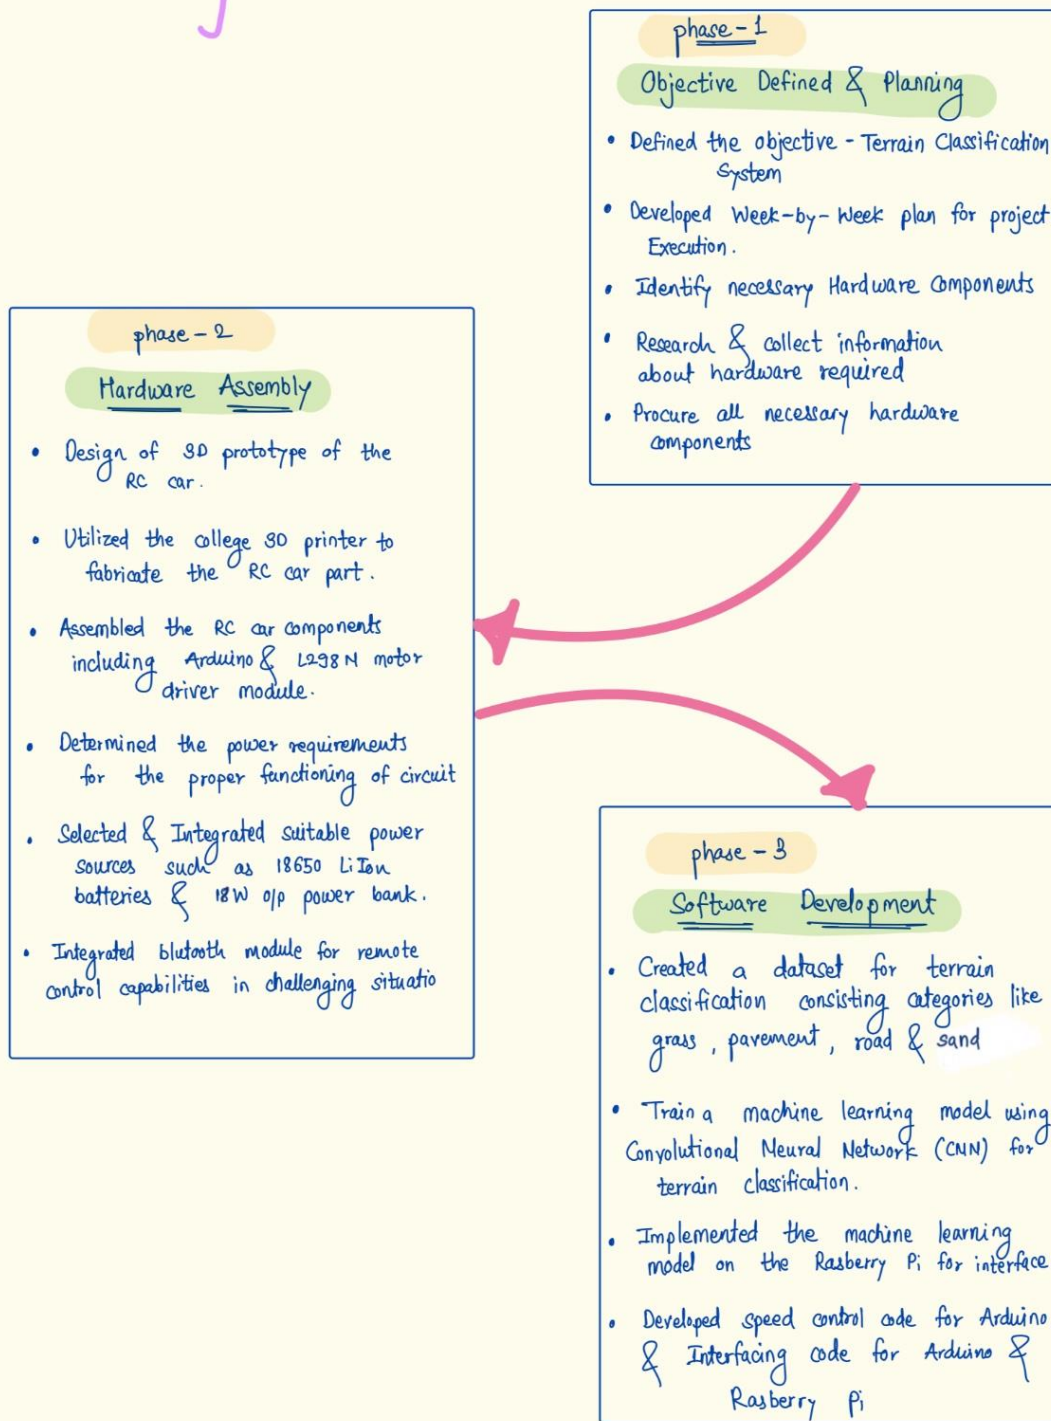 phase-1
Objective Defined & Planning
• Defined the objective - Terrain Classification
System
• Developed Week-by-Week plan for project
Execution.
• Identify necessary Hardware Components
• Research & collect information
about hardware required
• Procure all necessary hardware
components
phase-2
Hardware Assembly
• Design of 3D prototype of the
RC car.
• Utilized the college 3D printer to
fabricate the RC car part.
• Assembled the RC car components
including Arduino & L298N motor
driver module.
• Determined the power requirements
for the proper functioning of circuit
• Selected & Integrated suitable power
sources such as 18650 Li Ion
batteries & 18W o/p power bank.
• Integrated blutooth module for remote
control capabilities in challenging situatio
phase-3
Software Development
• Created a dataset for terrain
classification consisting categories like
grass, pavement, road & sand
• Train a machine learning model using
Convolutional Neural Network (CNN) for
terrain classification.
• Implemented the machine learning
model on the Rasberry Pi for interface
• Developed speed control code for Arduino
& Interfacing code for Arduino &
Rasberry Pi